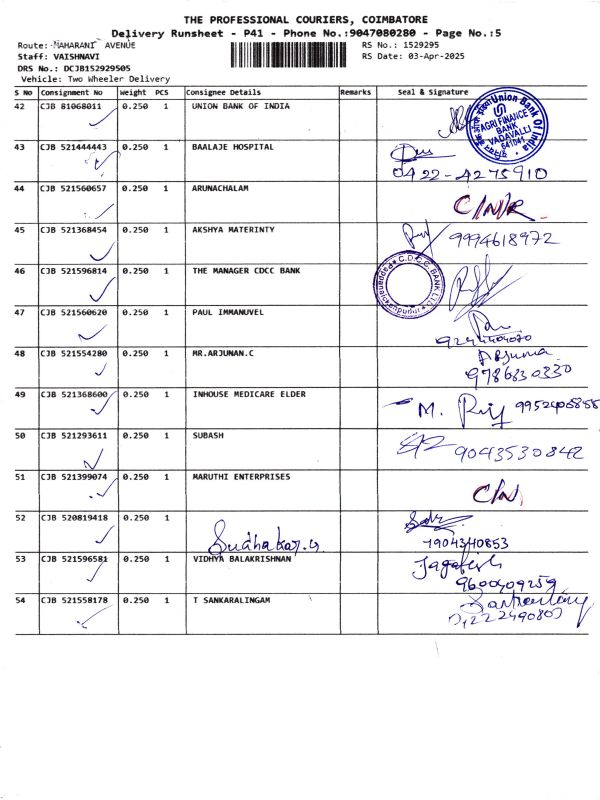 THE PROFESSIONAL COURIERS, COIMBATORE
Delivery Runsheet - P41 - Phone No.:9047080280 - Page No.:5
Route: MAHARANI AVENUE
RS No.: 1529295
Staff: VAISHNAVI
RS Date: 03-Apr-2025
DRS No.: DCJB152929505
Vehicle: Two Wheeler Delivery
S NO Consignment No Weight PCS Consignee Details Remarks Seal & Signature
42 CJB 81068011 0.250 1 UNION BANK OF INDIA
Union Bank Of India
AGRI FINANCE
BANK
VADAVALLI
641041
43 CJB 521444443 0.250 1 BAALAJE HOSPITAL
0422-4275910
44 CJB 521560657 0.250 1 ARUNACHALAM
C/N/R
45 CJB 521368454 0.250 1 AKSHYA MATERINTY
9994618972
46 CJB 521596814 0.250 1 THE MANAGER CDCC BANK
C.D.C.C. BANK LTD.
47 CJB 521560620 0.250 1 PAUL IMMANUVEL
48 CJB 521554280 0.250 1 MR.ARJUNAN.C
Arjuna
9786830330
49 CJB 521368600 0.250 1 INHOUSE MEDICARE ELDER
M.
50 CJB 521293611 0.250 1 SUBASH
9043530842
51 CJB 521399074 0.250 1 MARUTHI ENTERPRISES
52 CJB 520819418 0.250 1
Sudhakar.G
53 CJB 521596581 0.250 1 VIDHYA BALAKRISHNAN
Jagatish
9600409259
54 CJB 521558178 0.250 1 T SANKARALINGAM